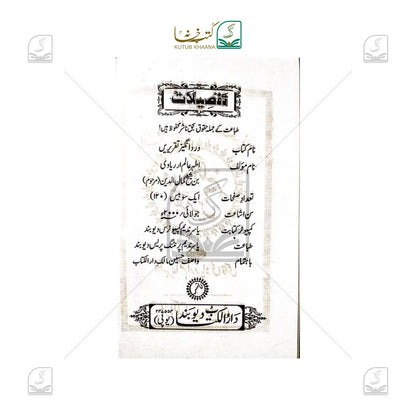 کتب خانہ
KUTUB KHAANA
تفصیلات
طباعت کے جملہ حقوق بحق ناشر محفوظ ہیں!
نام کتاب درد انگیز تقریریں
نام مؤلف اظہر عالم ارریاوی
بن شیخ کمال الدین (مرحوم)
تعداد صفحات ایک سو بیس (۱۲۰)
سن اشاعت جولائی ۲۰۰۰ء
کمپیوٹر کتابت یاسر ندیم کمپیوٹرس دیوبند
طباعت یاسر ندیم پرنٹنگ پریس دیوبند
باہتمام واصف حسین مالک دارالکتاب
دارالکتاب دیوبند (یوپی)